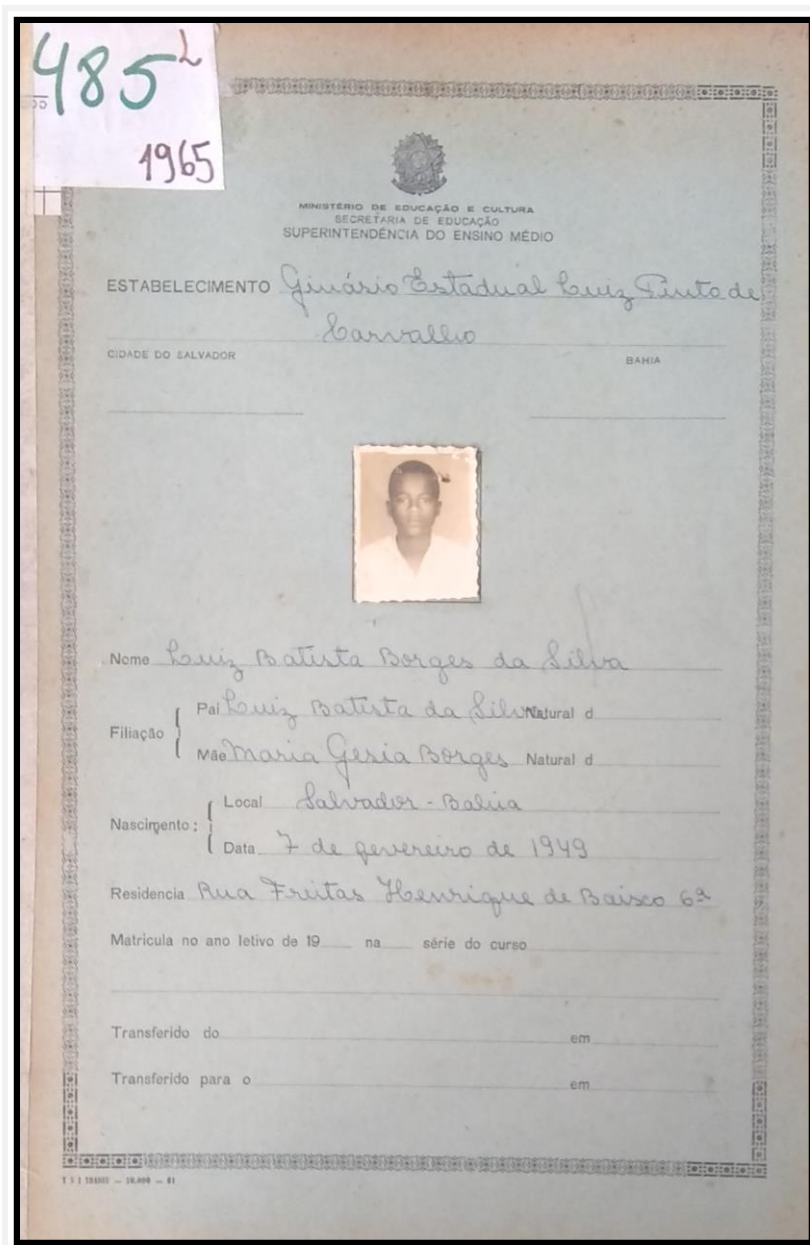 485 L
1965
MINISTÉRIO DE EDUCAÇÃO E CULTURA
SECRETARIA DE EDUCAÇÃO
SUPERINTENDÊNCIA DO ENSINO MÉDIO
ESTABELECIMENTO Ginásio Estadual Luiz Pinto de
Carvalho
CIDADE DO SALVADOR BAHIA
Nome Luiz Batista Borges da Silva
Filiação
Pai Luiz Batista da Silva Natural d
Mãe Maria Gesia Borges Natural d
Nascimento:
Local Salvador - Bahia
Data 7 de fevereiro de 1949
Residencia Rua Freitas Henrique de Baixo 6ª
Matricula no ano letivo de 19 na série do curso
Transferido do em
Transferido para o em